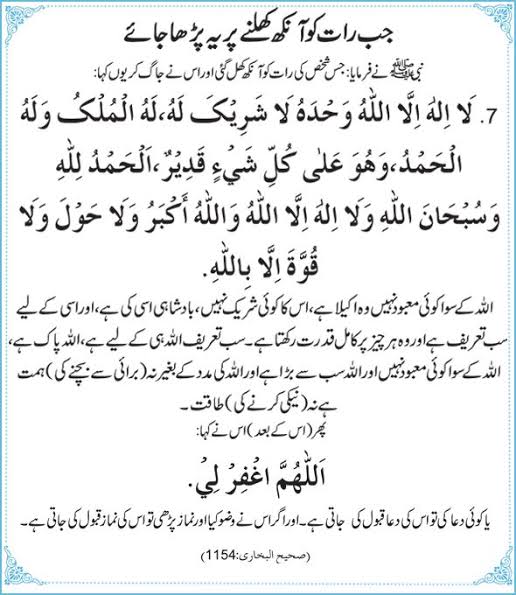 جب رات کو آنکھ کھلنے پر یہ پڑھا جائے
نبی ﷺ نے فرمایا: جس شخص کی رات کو آنکھ کھل گئی اور اس نے جاگ کر یوں کہا:
7. لَا اِلٰهَ اِلَّا اللّٰهُ وَحْدَهٗ لَا شَرِيْكَ لَهٗ، لَهُ الْمُلْكُ وَلَهُ
الْحَمْدُ، وَهُوَ عَلٰى كُلِّ شَيْءٍ قَدِيْرٌ، اَلْحَمْدُ لِلّٰهِ
وَسُبْحَانَ اللّٰهِ وَلَا اِلٰهَ اِلَّا اللّٰهُ وَاللّٰهُ أَكْبَرُ وَلَا حَوْلَ وَلَا
قُوَّةَ اِلَّا بِاللّٰهِ.
اللہ کے سوا کوئی معبود نہیں وہ اکیلا ہے، اس کا کوئی شریک نہیں، بادشاہی اسی کی ہے، اور اسی کے لیے
سب تعریف ہے اور وہ ہر چیز پر کامل قدرت رکھتا ہے۔ سب تعریف اللہ ہی کے لیے ہے، اللہ پاک ہے،
اللہ کے سوا کوئی معبود نہیں اور اللہ سب سے بڑا ہے اور اللہ کی مدد کے بغیر نہ (برائی سے بچنے کی) ہمت
ہے نہ (نیکی کرنے کی) طاقت۔
پھر (اس کے بعد) اس نے کہا:
اَللّٰهُمَّ اغْفِرْ لِيْ.
یا کوئی دعا کی تو اس کی دعا قبول کی جاتی ہے۔ اور اگر اس نے وضو کیا اور نماز پڑھی تو اس کی نماز قبول کی جاتی ہے۔
(صحیح البخاری:1154)